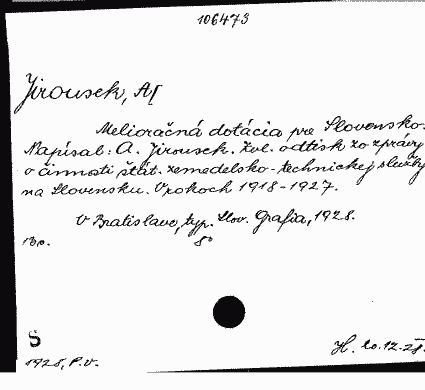 106473
Jirousek, A[
Melioračná dotácia pre Slovensko.
Napísal: A. Jirousek. Zvl. odtisk zo zprávy
o činnosti štát. zemedelsko-technickej služby
na Slovensku. V rokoch 1918-1927.
V Bratislave, typ. Slov. Grafia, 1928.
8°
S
H. 20.12.28.
1928, P.v.